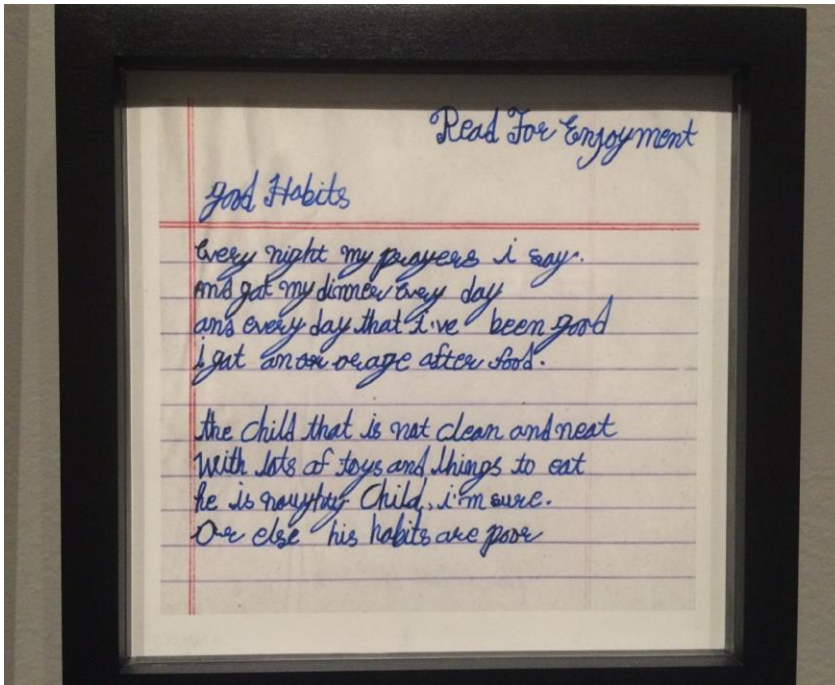 Read For Enjoyment
good Habits
Every night my prayers i say.
And gat my dinner every day
ans every day that i've been good
i gat an orage after food.
the child that is not clean and neat
With lots af toys and things to eat
he is noughty Child, i'm sure.
Or else his habits are poor